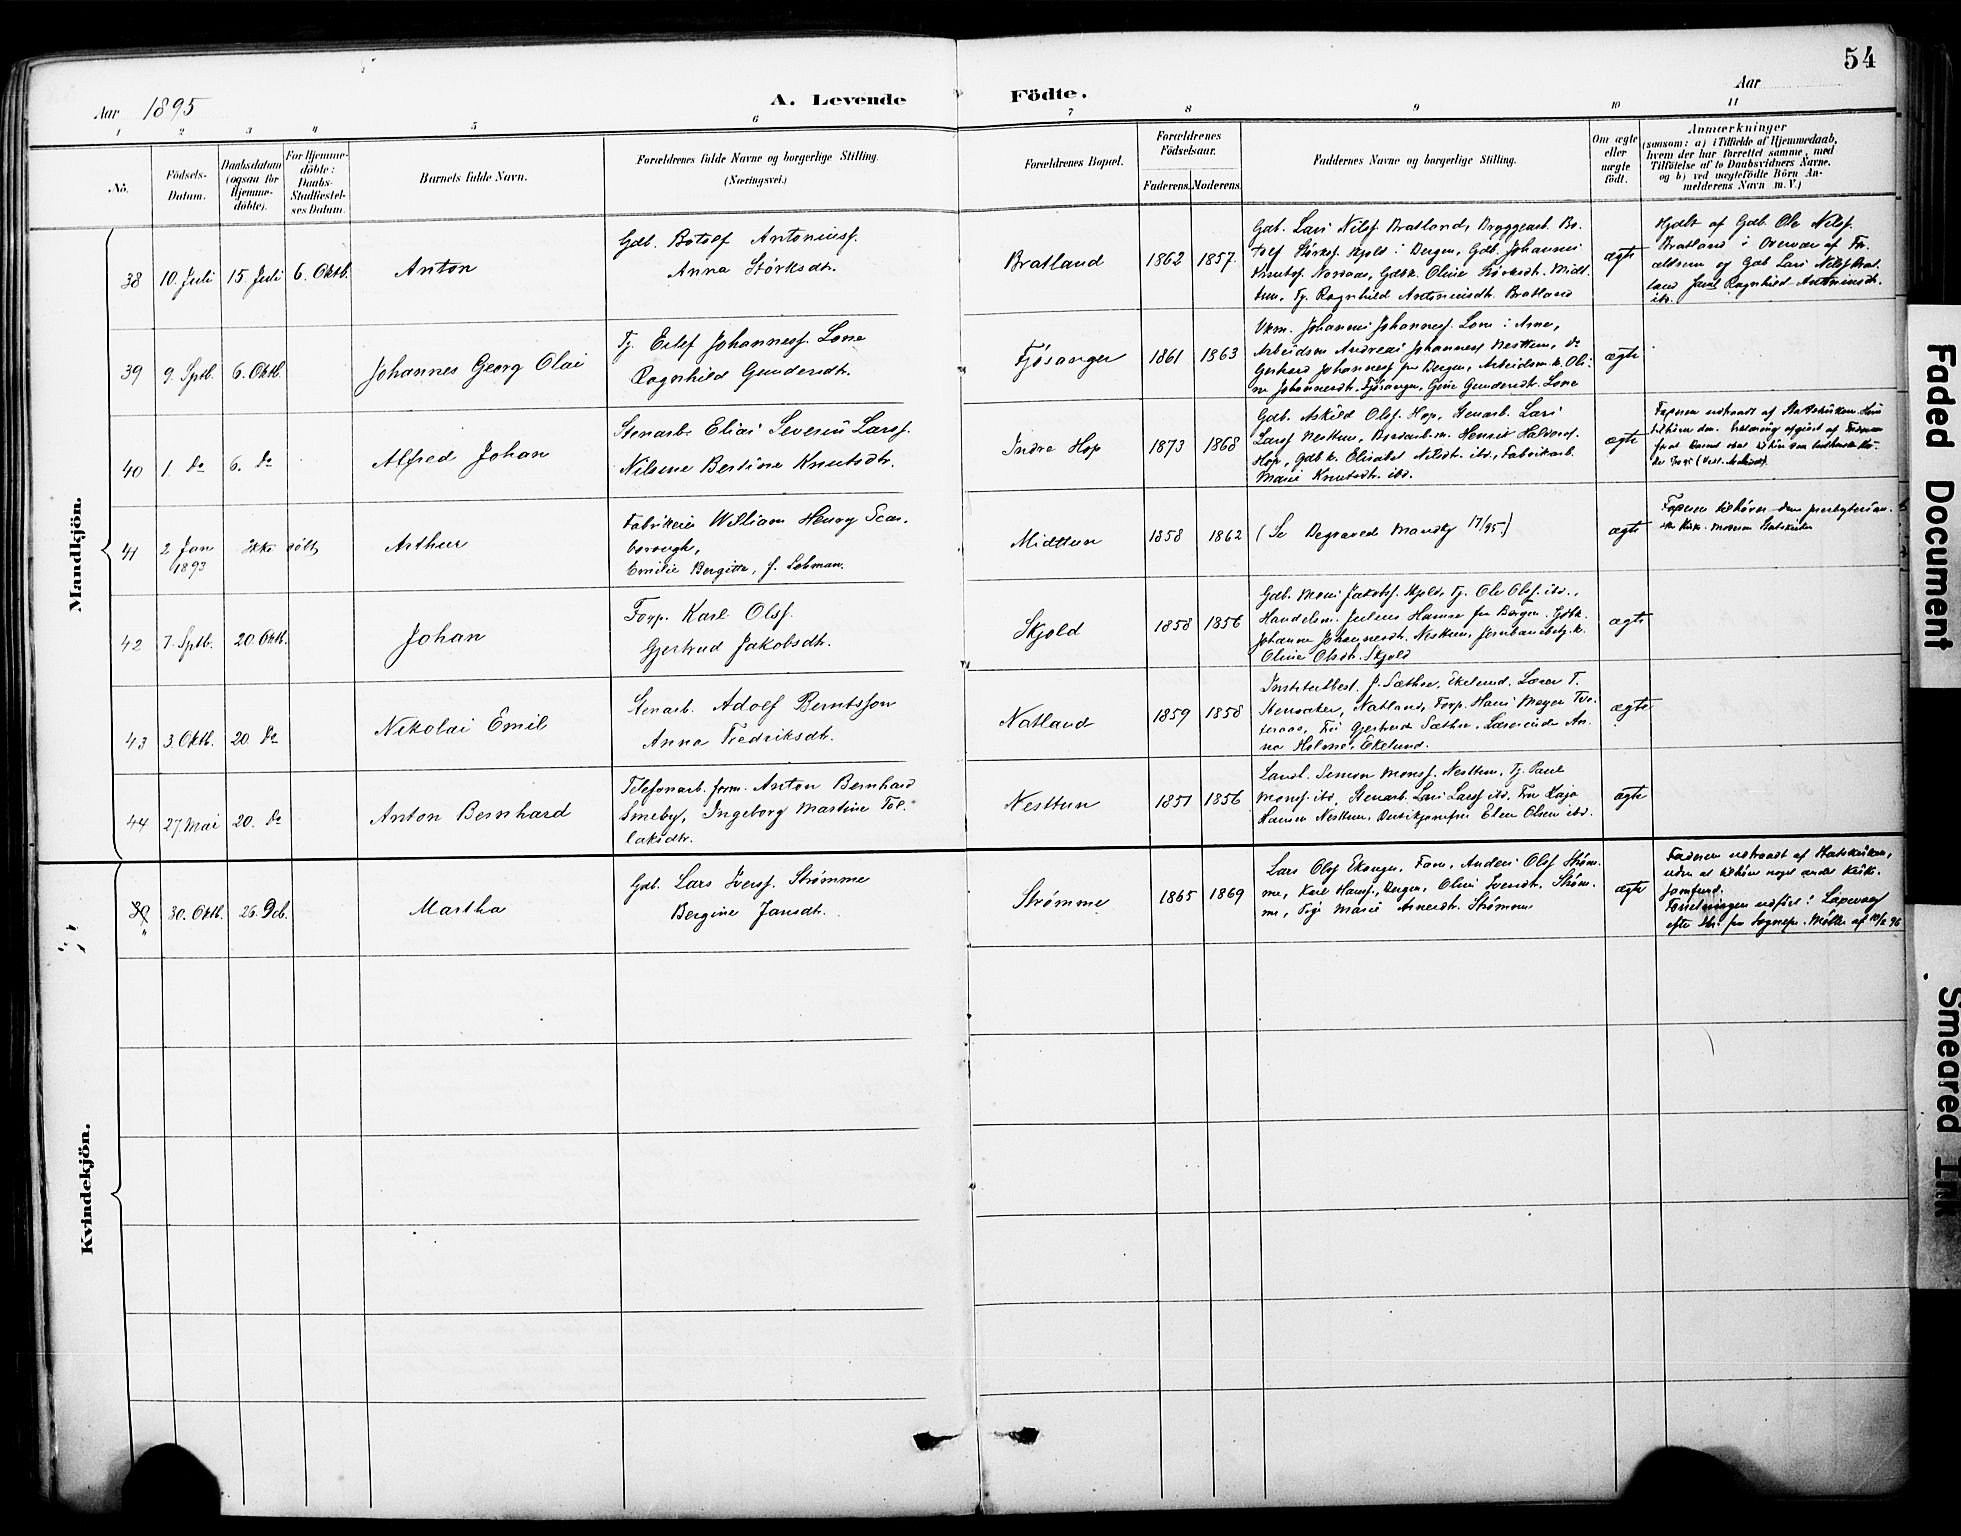 54
Aar 1895
A. Levende Födte.
Aar
1 2 3 4 5 6 7 8 9 10 11
No.
Födsels-
Datum.
Daabsdatum
(ogsaa for
Hjemme-
döbte).
For Hjemme-
döbte:
Daabs-
Stadfæstel-
ses Datum.
Barnets fulde Navn.
Forældrenes fulde Navne og borgerlige Stilling.
(Næringsvei.)
Forældrenes Bopæl.
Forældrenes
Födselsaar.
Faderens. Moderens.
Faddernes Navne og borgerlige Stilling.
Om ægte
eller
uægte
födt.
Anmærkninger
(saasom: a) i Tilfælde af Hjemmedaab,
hvem der har forrettet samme, med
Tilföielse af to Daabsvidners Navne,
og b) ved uægtefödte Börn An-
melderens Navn m.V.)
Mandkjön.
38 10. Juli 15. Juli 6. Oktb. Anton
Gdb. Botolf Antoniusf.
Anna Størksdtr.
Bratland 1862 1857
Gdb. Lars Nilsf. Bratland, Bryggearb. Bo-
tolf Størksf. Skjold i Bergen, Gdb. Johannes
Knutsf. , Gdbk. Oline Størksdt. Midt-
tun, Tj. Ragnhild Antoniusdt. Bratland
ægte
Hjdbt af Gdb. Ole Nilsf.
Bratland i Overvær af For-
ældrene og Gdb Lars Nilsf Brat-
land samt Ragnhild Antoniusdt.
ibd.
39 9. Sptb. 6. Oktb. Johannes Georg Olai
Tj. Eilef Johannesf. Lone
Ragnhild Gundersdtr.
Fjösanger 1861 1863
Ukm. Johannes Johannesf. Lone i Arne,
Arbeidsm Andreas Johannesf Nesttun, do
Gerhard Johannesf fra Bergen, Arbeidsm.k. Oli-
ne Johannesdt. Fjösanger, Gjine Gundersdt. Lone
ægte
40 1. do 6. do Alfred Johan
Stenarb. Elias Severin Larsf.
Nilsine Bertine Knutsdtr.
Indre Hop 1873 1868
Gdb. Askild Olsf. Hop, Stenarb. Lars
Larsf Nesttun, Henrik Halvorsf.
Hop, Gdbk. Elisabet Nilsdt. ibd., Fabrikarb.
Marie Knutsdt. ibd.
ægte
Faderen udtraadt af Statskirken
41 2 Jan
1893
Ikke döbt Arthur
Fabrikeier William Henry Scar-
borough,
Emilie Bergitte, f. Lohman.
Midttun 1858 1862
(Se Begraved Mandkj 17/95)
ægte
Faderen tilhører den presbyterian-
ske Kirke. Moderen Statskirken
42 7. Sptb. 20. Oktb. Johan
Forp. Karl Olsf.
Gjertrud Jakobsdtr.
Skjold 1858 1856
Gdb. Mons Jakobsf. Skjold, Tj. Ole Olsf. ibd.,
Handelsm. Julius Hansen fra Bergen,
Johanne Johannesdt. Nesttun, Jernbanebetj.k.
Oline Olsdt. Skjold
ægte
43 3. Oktb. 20. do Nikolai Emil
Stenarb. Adolf Berntsson
Anna Fredriksdt.
Natland 1859 1858
Institutbest. J. Sæthre, Ekelund, Lærer T.
Stensaker, Natland, Forp. Hans Meyer
Frk Gjertrud Sæthre, Lærerinde An-
na Holmø, Ekelund.
ægte
44 27. Mai 20. do Anton Bernhard
Telefonarb. form. Anton Bernhard
Smeby, Ingeborg Martine Tol-
laksdtr.
Nesttun 1851 1856
Landh. Simon Monsf. Nesttun, Tj. Paul
Monsf ibd, Stenarb. Lars Larsf ibd, Fru Kaja
Hansen Nesttun, Elen Olsen ibd.
ægte
Kvindekjön.
30. Oktb. 26. Deb. Martha
Gdb. Lars Iversf. Strømme
Bergine Jansdt.
Strømme 1865 1869
Lars Olsf Ekanger, Fane, Anders Olsf Strøm-
me, Karl Hansf., Bergen, Oline Iversdt. Strøm-
me, Pige Marie Arnesdt. Strømme
ægte
Faderen udtraadt af Statskirken,
uden at tilhøre noget andet Kirke-
samfund.
Forretningen udført i
efter fra Sognepr. Møller af 10/2 96
Faded Document
Smeared Ink